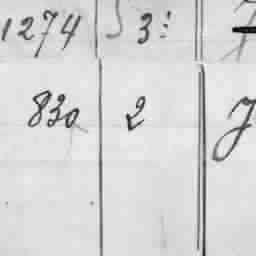 1274 3
830 2 J